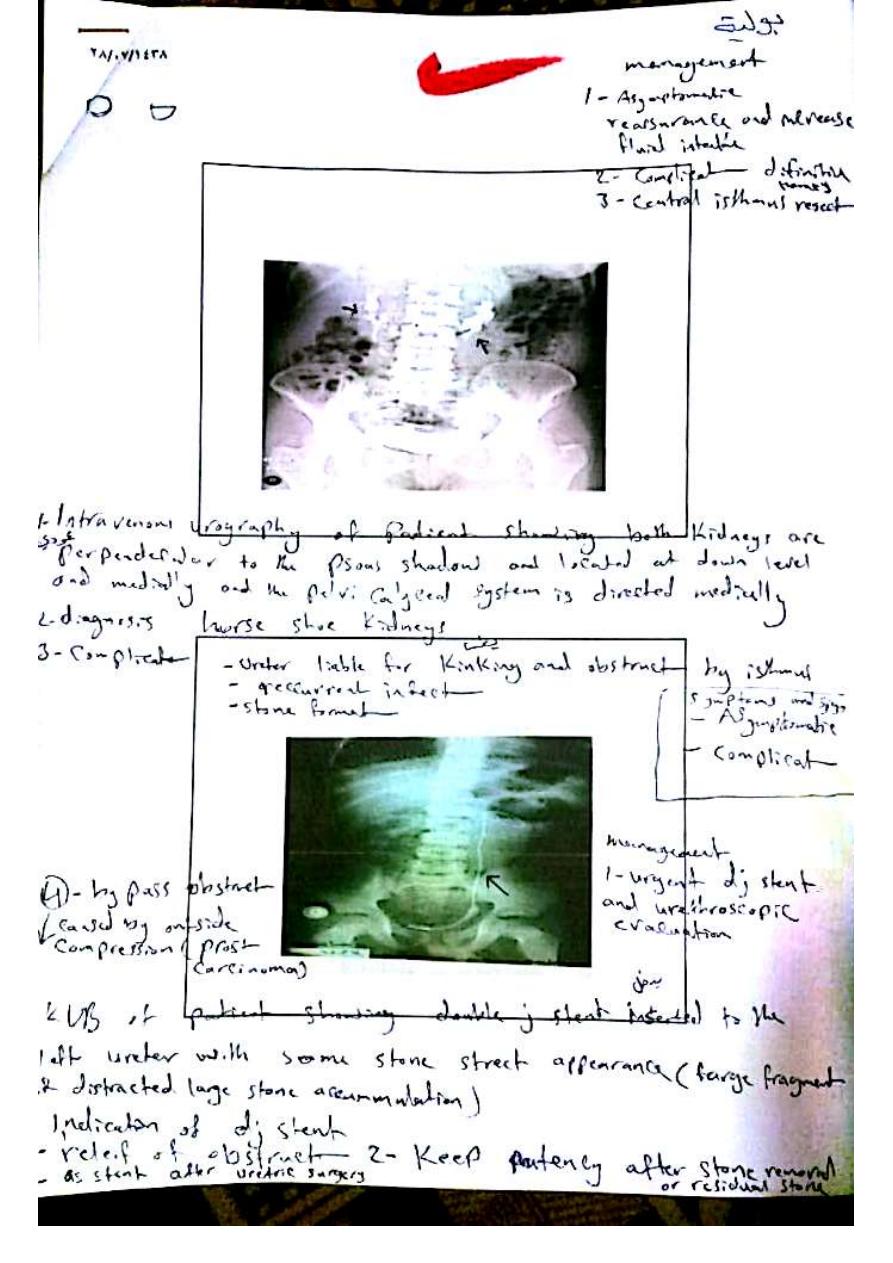 بولية
٢٨/٠٧/١٤٣٨
management
1 - Asymptomatic
reassurance and increase
fluid intake
2 - Complicat
3 - Central isthmus resect
1- Intravenous urography of patient showing both Kidneys are
to the psoas shadow and located at down level
and medially and the pelvi calyceal system is directed medially
2- diagnosis horse shoe Kidneys
3 - Complicate
- ureter liable for Kinking and obstruct by isthmus
- reccurrent infect
- stone format
symptoms and sign
- Asymptomatic
- Complicat
management
1 - urgent dj stent
and urethroscopic
evaluation
④ - by pass obstruct
caused by outside
compression ( prost
carcinoma)
KUB of patient showing double j stent inserted to the
left ureter with some stone street appearance ( large fragment
& distracted large stone accummulation )
Indication of dj stent
- releif of obstruct 2 - Keep patency after stone removal
or residual stone
- as stent after uretric surgery